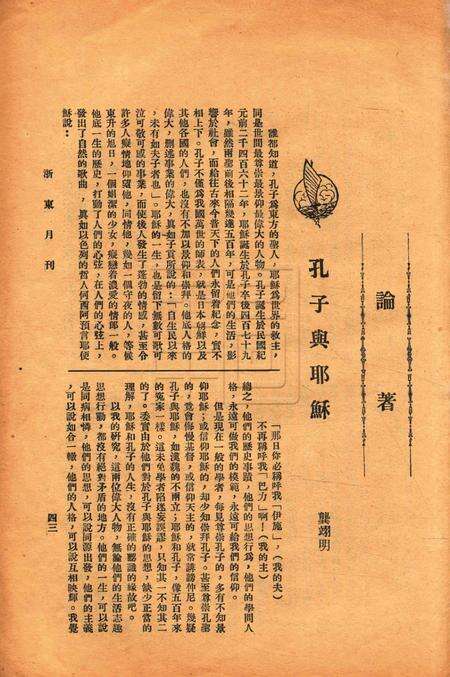 論著
孔子與耶穌
龔翊明
誰都知道，孔子爲東方的聖人，耶穌爲世界的救主，
同是世間最尊崇最景仰最偉大的人物。孔子誕生於民國紀
元前二千四百六十二年，耶穌誕生於孔子卒後四百七十九
年，雖然兩聖前後相隔幾達五百年，可是他們的生活，影
響於社會，而給往古來今普天下的人們永留着紀念，實不
相上下。孔子不僅爲我國萬世的師表，就是日本朝鮮以及
其他各國的人們，也沒有不加以景仰和崇拜。他底人格的
偉大，刪述事業的偉大，眞如子貢所說的：「自生民以來
，未有如夫子者也」。耶穌的一生，也是留下無數可歌可
泣可敬可感的事業，而使後人發生了蓬勃的情感，甚至令
許多人癡情地仰望他，同情他，幾如一個守夜的人，等候
東升的旭日，一個娟潔的少女，癡戀着濃愛的情郎一般。
他底一生的歷史，打動了人們的心弦，在人們的心弦上，
發出了自然的歌曲，眞如以色列的哲人何西阿預言耶使
穌說：
「那日你必稱呼我「伊施」，（我的夫）
不再稱呼我「巴力」啊！（我的主）
總之，他們的歷史事蹟，他們的思想行爲，他們的學問人
格，永遠可做我們的模範，永遠可給我們的信仰。
但是現在一般的學者，每見尊崇孔子的，多有不知景
仰耶穌；或信仰耶穌的，却少知崇拜孔子。甚至尊崇孔聖
的，竟會侮慢基督，或信仰天主的，就常誹謗仲尼。幾疑
孔子與耶穌，如漢魏的不兩立；耶穌和孔子，像五百年來
的寃家一樣。這未免學者陷迷妄誤謬，只知其一不知其二
的了。委實由於他們對於孔子與耶穌的思想，缺少正當的
理解，耶穌和孔子的人生，沒有正確的認識的緣故吧。
以我的研究，這兩位偉大人物，無論他們的生活志趣
思想行動，都沒有絕對矛盾的地方。他們的一生，可以說
是同病相憐，他們的思想，可以說同源出發，他們的主義
，可以說如合一轍，他們的人格，可以說互相映輝。我覺
浙東月刊
四三